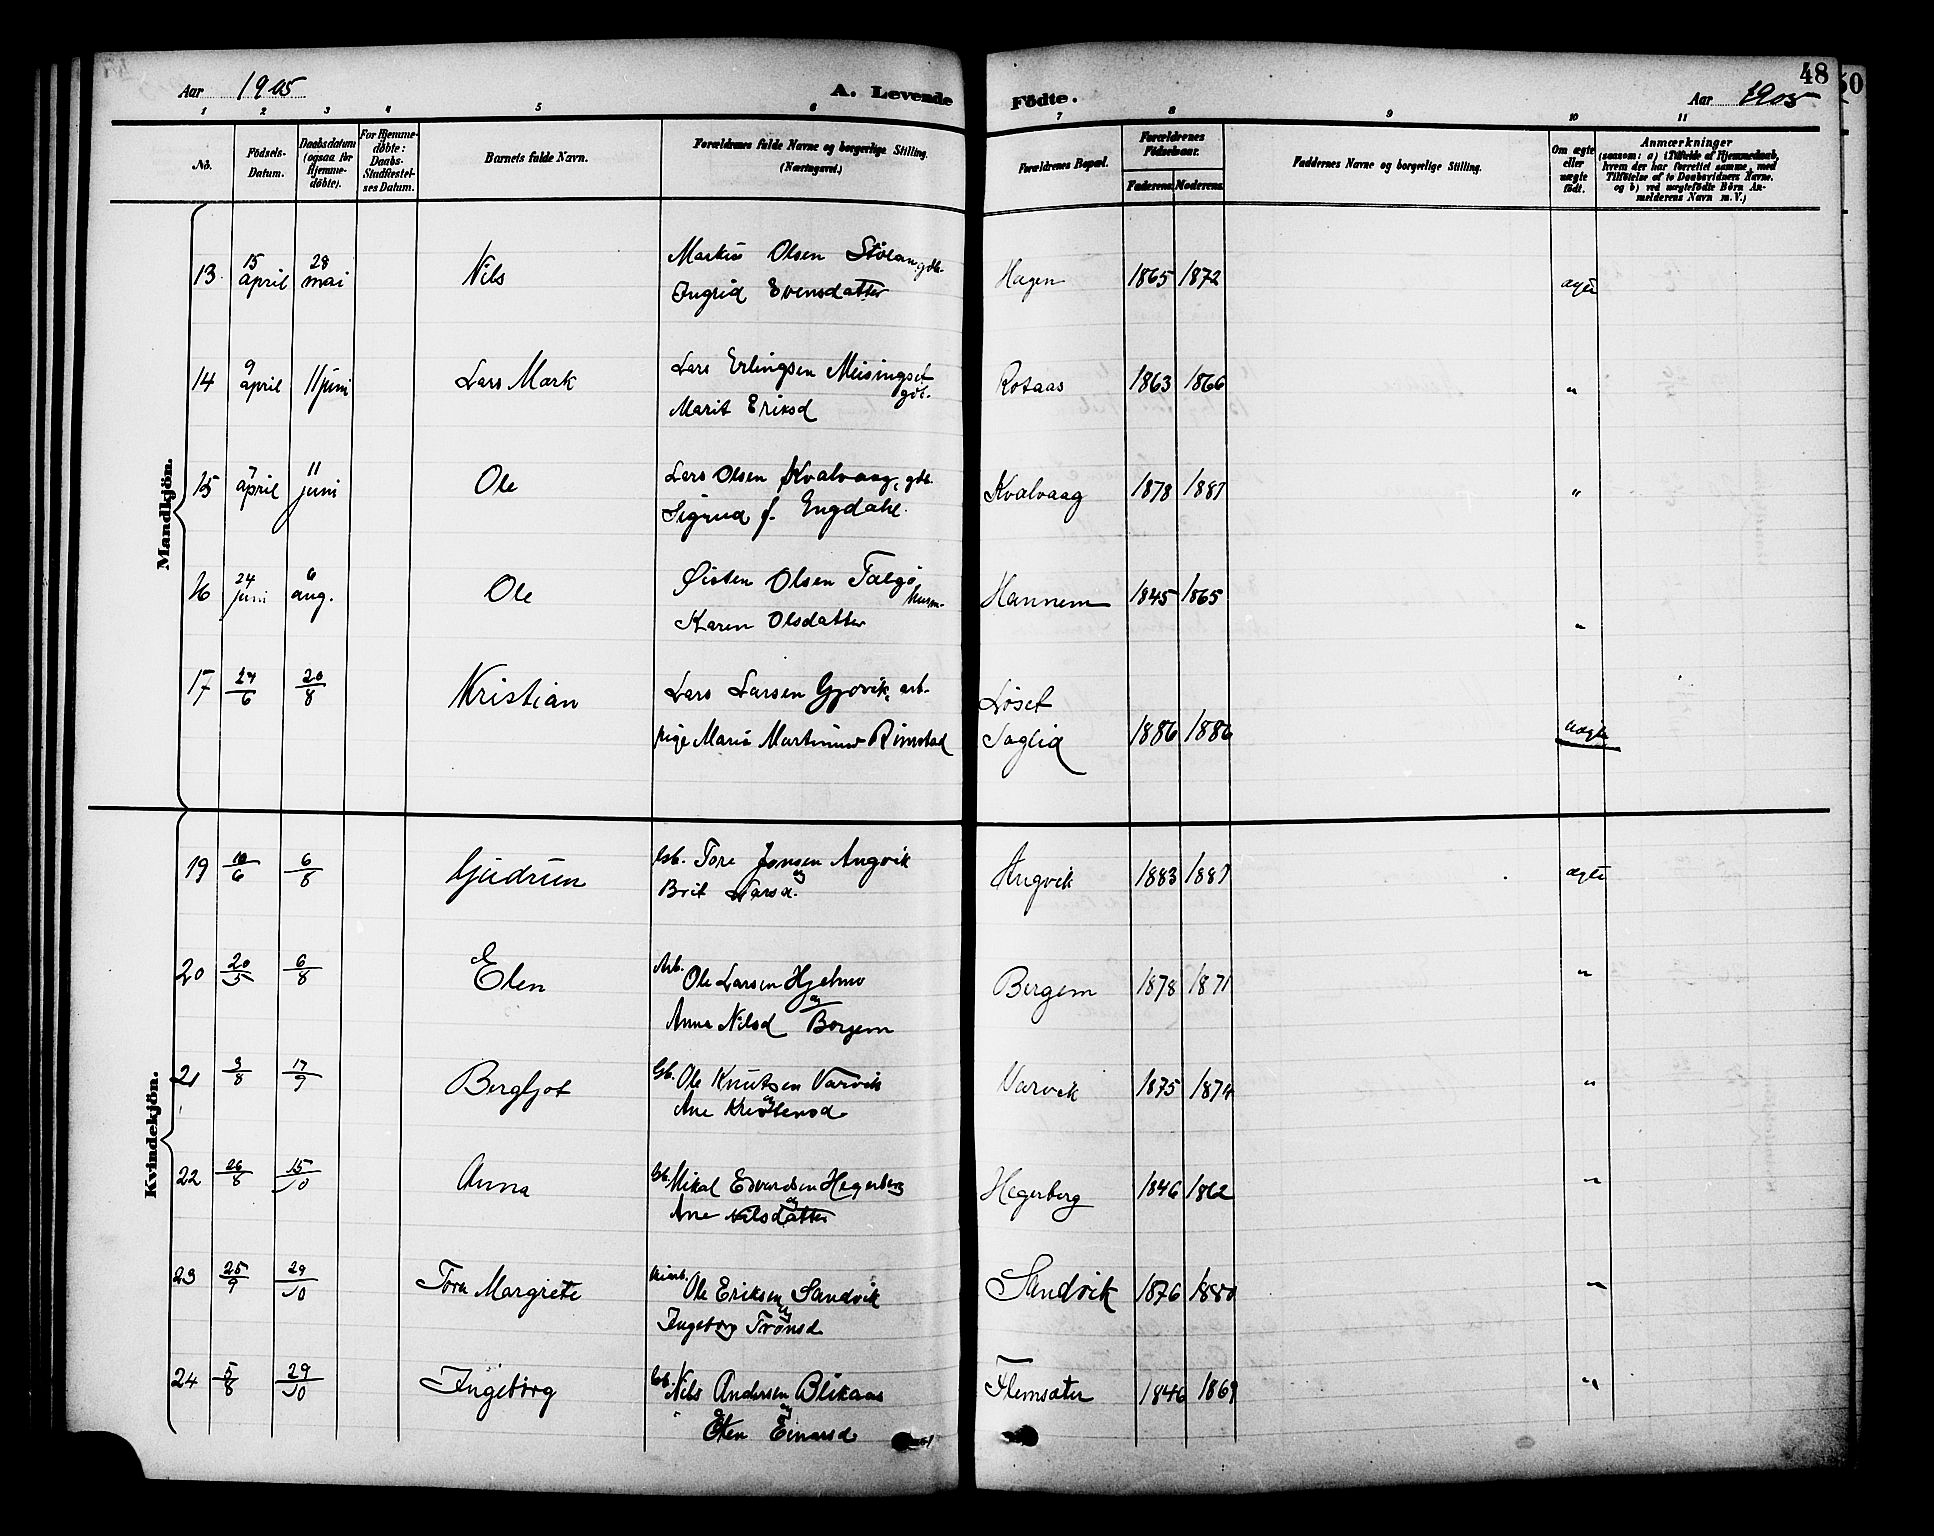 48
50
Aar 1905
A. Levende
Födte.
Aar 1905
1 2 3 4 5 6 7 8 9 10 11
No.
Födsels-
Datum.
Daabsdatum
(ogsaa for
Hjemme-
döbte).
For Hjemme-
döbte:
Daabs-
Stadfæstel-
ses Datum.
Barnets fulde Navn.
Forældrenes fulde Navne og borgerlige Stilling.
(Næringsvei.)
Forældrenes Bopæl.
Forældrenes
Födselsaar.
Faderens. Moderens.
Faddernes Navne og borgerlige Stilling.
Om ægte
eller
uægte
födt.
Anmærkninger
(saasom: a) i Tilfælde af Hjemmedaab,
hvem der har forrettet samme, med
Tilföielse af to Daabsvidners Navne,
og b) ved uægtefödte Börn An-
melderens Navn m. V.)
Mandkjön.
13 15 april 28 mai Nils Markus Olsen Stölan gdb.
Ingrid Evensdatter
Hagen 1865 1872 ægte
14 9 april 11 juni Lars Mark Lars Erlingsen Meisingset
gdb.
Marit Eriksd
Rotaas 1863 1866 "
15 7 april 11 juni Ole Lars Olsen Kvalvaag, gdb.
Sigrud f. Engdahl.
Kvalvaag 1878 1881 "
16 24 juni 6 aug. Ole Østen Olsen Talgö
husm.
Karen Olsdatter
Hannem 1845 1865 "
17 24/6 20/8 Kristian Lars Larsen Gjövik, arb.
pige Marie Martinus Rimstad
Löset
Saglid 1886 1886 uægte
Kvindekjön.
19 10/6 6/8 Gudrun Gb. Tore Jonsen Angvik
og
Brit Larsd.
Angvik 1883 1881 ægte
20 20/5 6/8 Elen Arb. Ole Larsen Hjelmo
og
Anna Nilsd Bergem
Bergem 1878 1871 "
21 3/8 17/9 Bergljot Gb. Ole Knutsen Varvik
og
Ane Kristensd
Varvik 1875 1874 "
22 26/8 15/10 Anna Gb. Mikal Edvardsen Hegerberg
og
Ane Nilsdatter
Hegerberg 1846 1862 "
23 25/9 29/10 Tora Margrete Ole Eriksen Sandvik
og
Ingeborg Tronsd
Sandvik 1876 1880 "
24 5/8 29/10 Ingeborg Gb. Nils Andersen Blikaas
og
Elen Einarsd
Flemsæter 1846 1869 "